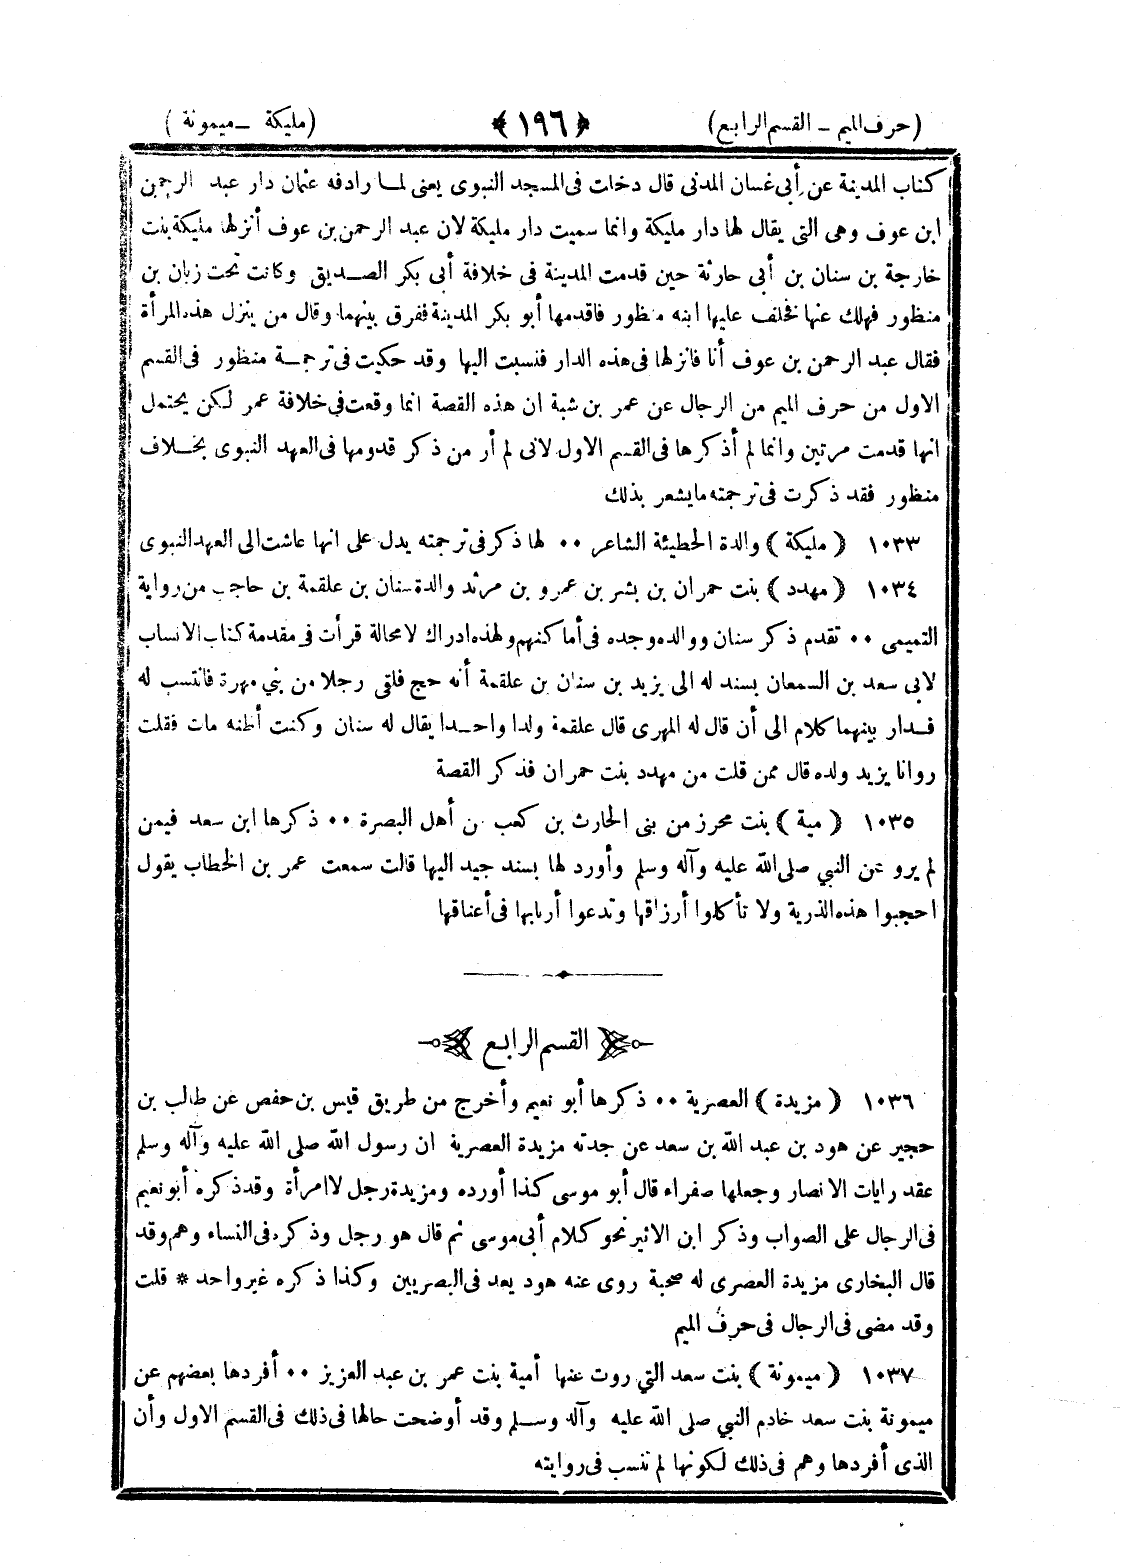 (حرف الميم – القسم الرابع) ﴿١٩٦﴾ (مليكة – ميمونة)
كتاب المدينة عن أبي غسان المدني قال دخلت في المسجد النبوى يعنى لما زاد فيه عثمان دار عبد الرحمن
ابن عوف وهى التي يقال لها دار مليكة وانما سميت دار مليكة لان عبد الرحمن بن عوف أنزلها مليكة بنت
خارجة بن سنان بن أبي حارثة حين قدمت المدينة في خلافة أبي بكر الصديق وكانت تحت زبان بن
منظور فهلك عنها فخلف عليها ابنه منظور فاقدمها أبو بكر المدينة ففرق بينهما وقال من ينزل هذه المرأة
فقال عبد الرحمن بن عوف أنا فانزلها في هذه الدار فنسبت اليها وقد حكيت في ترجمة منظور في القسم
الاول من حرف الميم من الرجال عن عمر بن شبة ان هذه القصة انما وقعت في خلافة عمر لكن يحتمل
انها قدمت مرتين وانما لم أذكرها في القسم الاول لانى لم أر من ذكر قدومها في العهد النبوى بخلاف
منظور فقد ذكرت في ترجمته ما يشعر بذلك
١٠٣٣ (مليكة) والدة الحطيئة الشاعر ٠٠ لها ذكر في ترجمته يدل على انها عاشت الى العهد النبوى
١٠٣٤ (مهدد) بنت حمران بن بشر بن عمرو بن مرثد والدة سنان بن علقمة بن حاجب من رواية
التميمى ٠٠ تقدم ذكر سنان ووالده وجده في أماكنهم ولهذه ادراك لا محالة قرأت في مقدمة كتاب الانساب
لابى سعد بن السمعان بسند له الى يزيد بن سنان بن علقمة أنه حج فلقى رجلا من بني مهرة فانتسب له
فدار بينهما كلام الى أن قال له المهرى قال علقمة ولدا واحدا يقال له سنان وكنت أظنه مات فقلت
روانا يزيد ولده قال ممن قلت من مهدد بنت حمران فذكر القصة
١٠٣٥ (مية) بنت محرز من بنى الحارث بن كعب من أهل البصرة ٠٠ ذكرها ابن سعد فيمن
لم يرو عن النبي صلى الله عليه وآله وسلم وأورد لها بسند جيد اليها قالت سمعت عمر بن الخطاب يقول
احجبوا هذه الذرية ولا تأكلوا أرزاقها وتدعوا أربابها في أعناقها
القسم الرابع
١٠٣٦ (مزيدة) العصرية ٠٠ ذكرها أبو نعيم وأخرج من طريق قيس بن حفص عن طالب بن
حجير عن هود بن عبد الله بن سعد عن جدته مزيدة العصرية ان رسول الله صلى الله عليه وآله وسلم
عقد رايات الانصار وجعلها صفراء قال أبو موسى كذا أورده ومزيدة رجل لا امرأة وقد ذكره أبو نعيم
في الرجال على الصواب وذكر ابن الاثير نحو كلام أبي موسى ثم قال هو رجل وذكره في النساء وهم وقد
قال البخارى مزيدة العصرى له صحبة روى عنه هود يعد في البصريين وكذا ذكره غير واحد * قلت
وقد مضى في الرجال في حرف الميم
١٠٣٧ (ميمونة) بنت سعد التي روت عنها أمية بنت عمر بن عبد العزيز ٠٠ أفردها بعضهم عن
ميمونة بنت سعد خادم النبي صلى الله عليه وآله وسلم وقد أوضحت حالها في ذلك في القسم الاول وأن
الذى أفردها وهم في ذلك لكونها لم تنسب في روايته